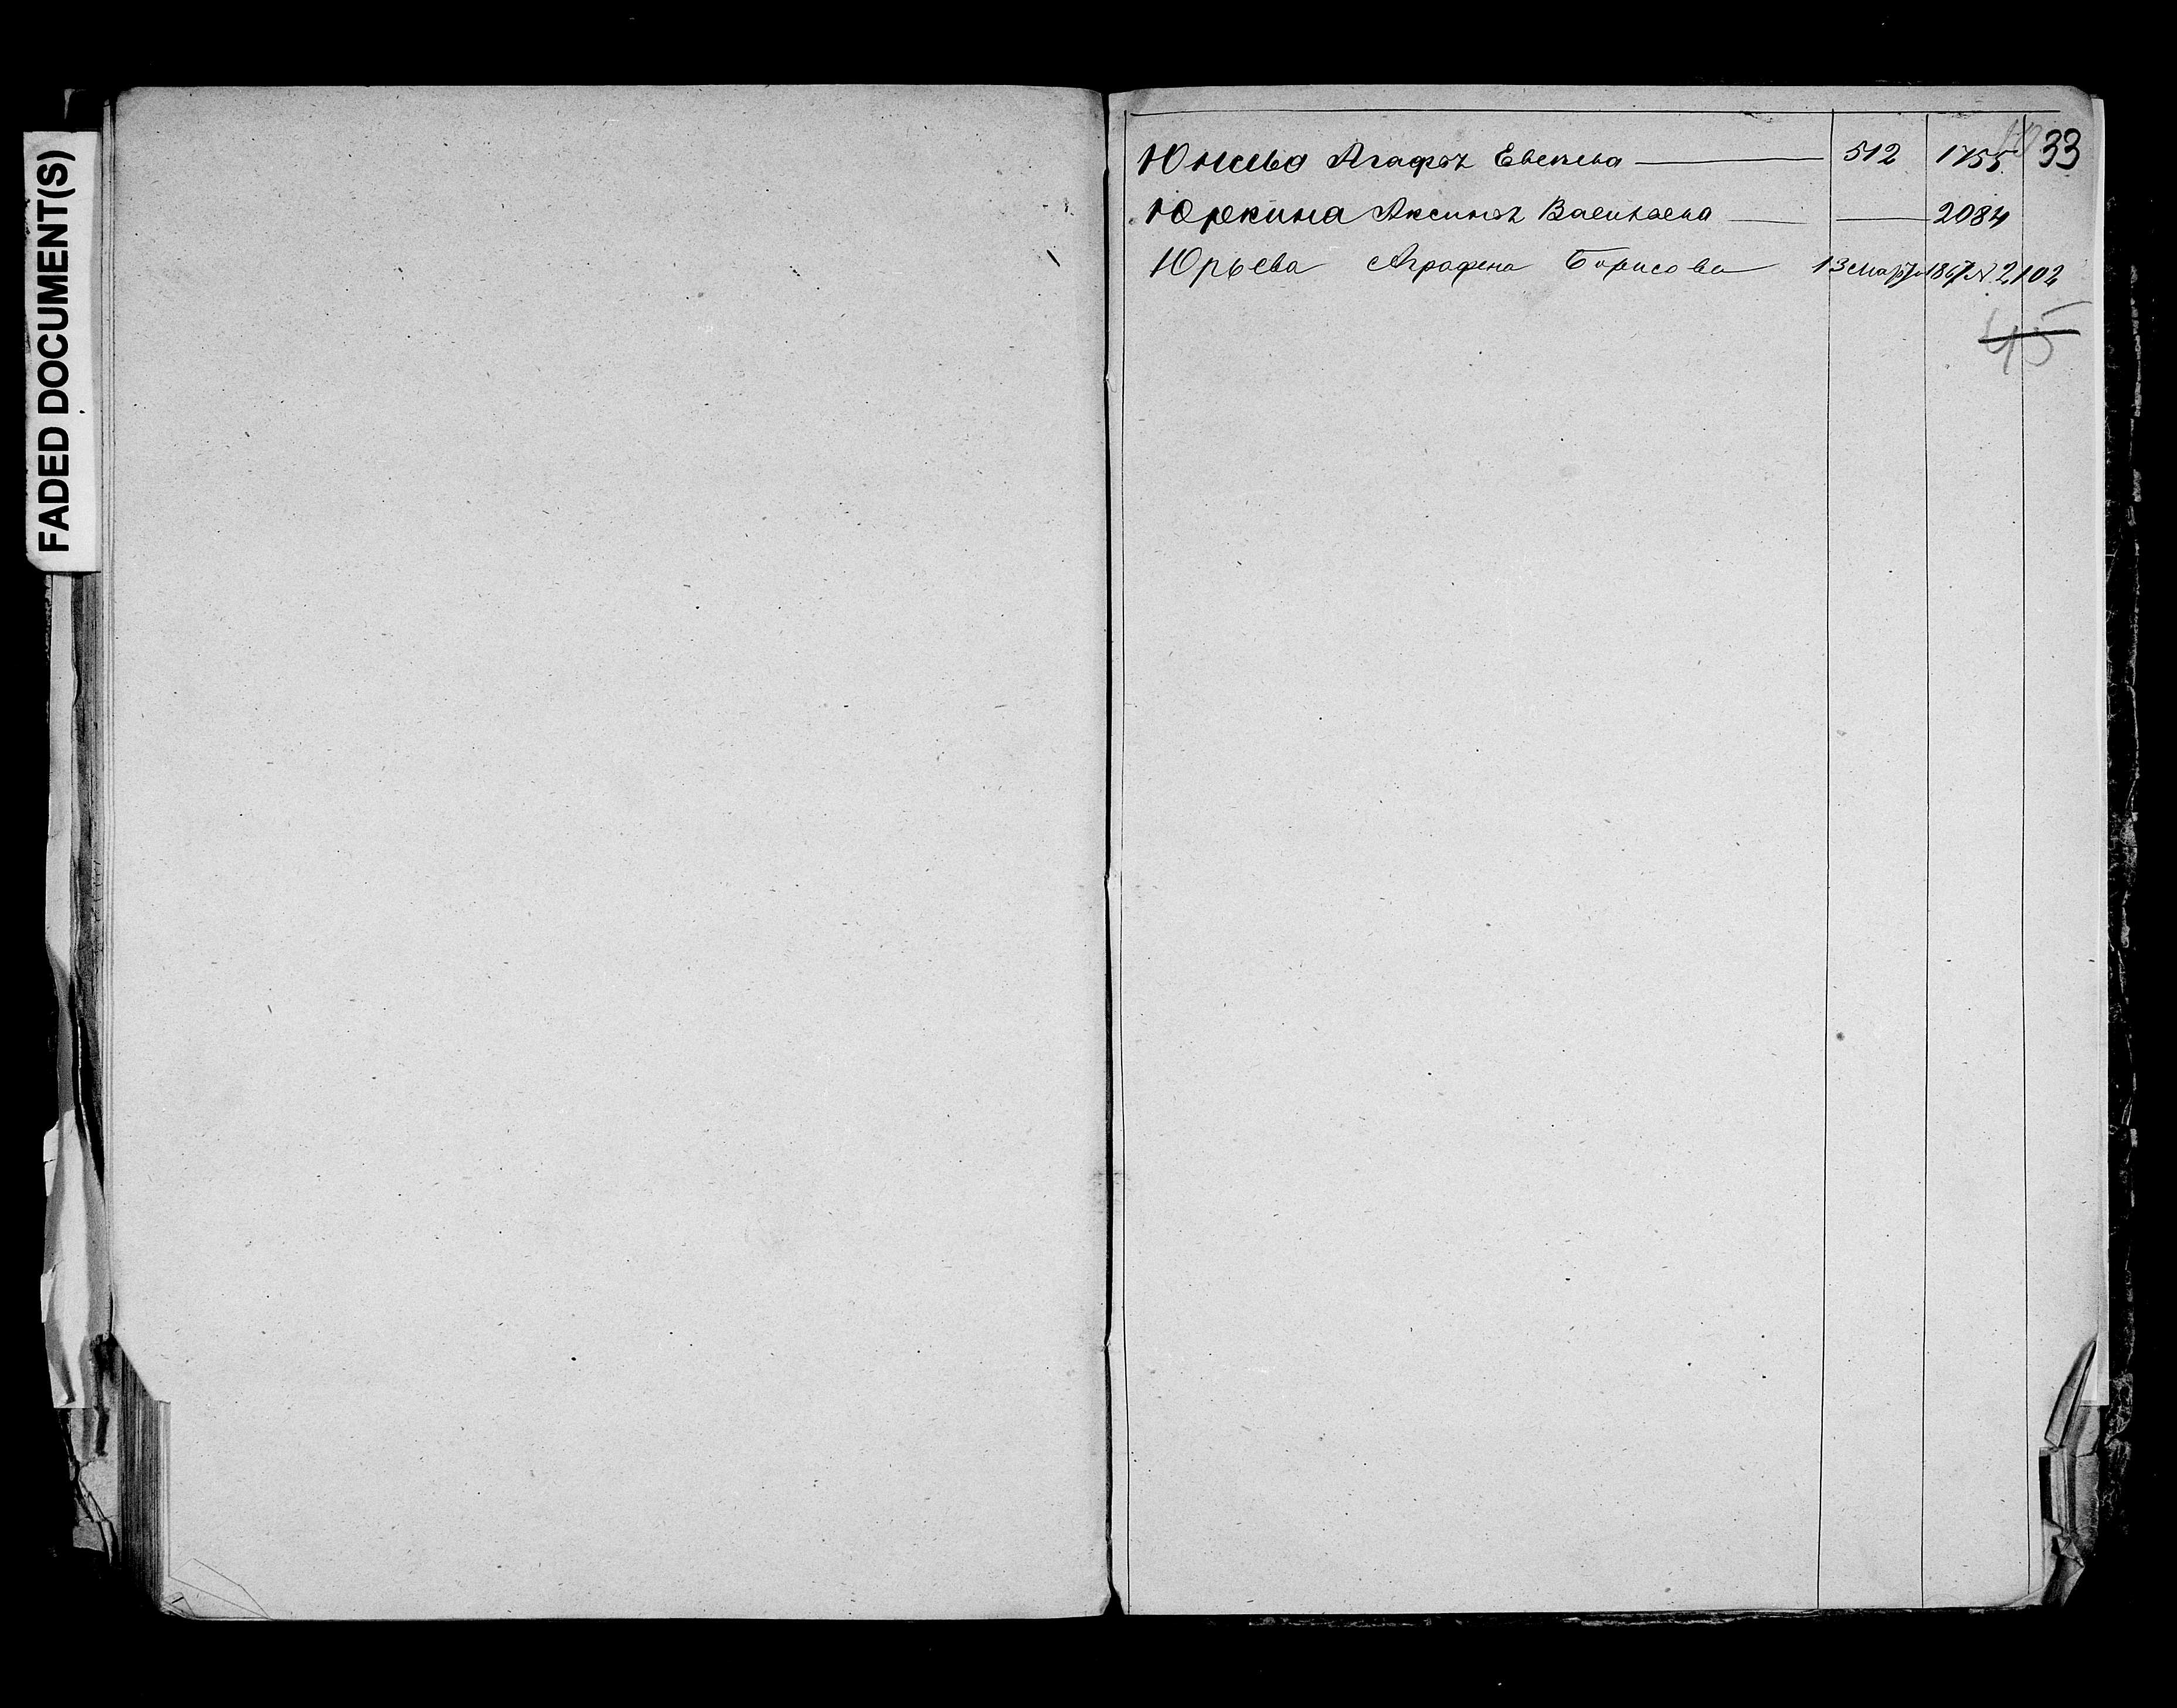 FADED DOCUMENT(S)
33
Агафья Евсеева 512 1755
Юркина Аксинья Васильева 2084
Юрьева Аграфена Борисова 13 марта 1867 N 2102
45